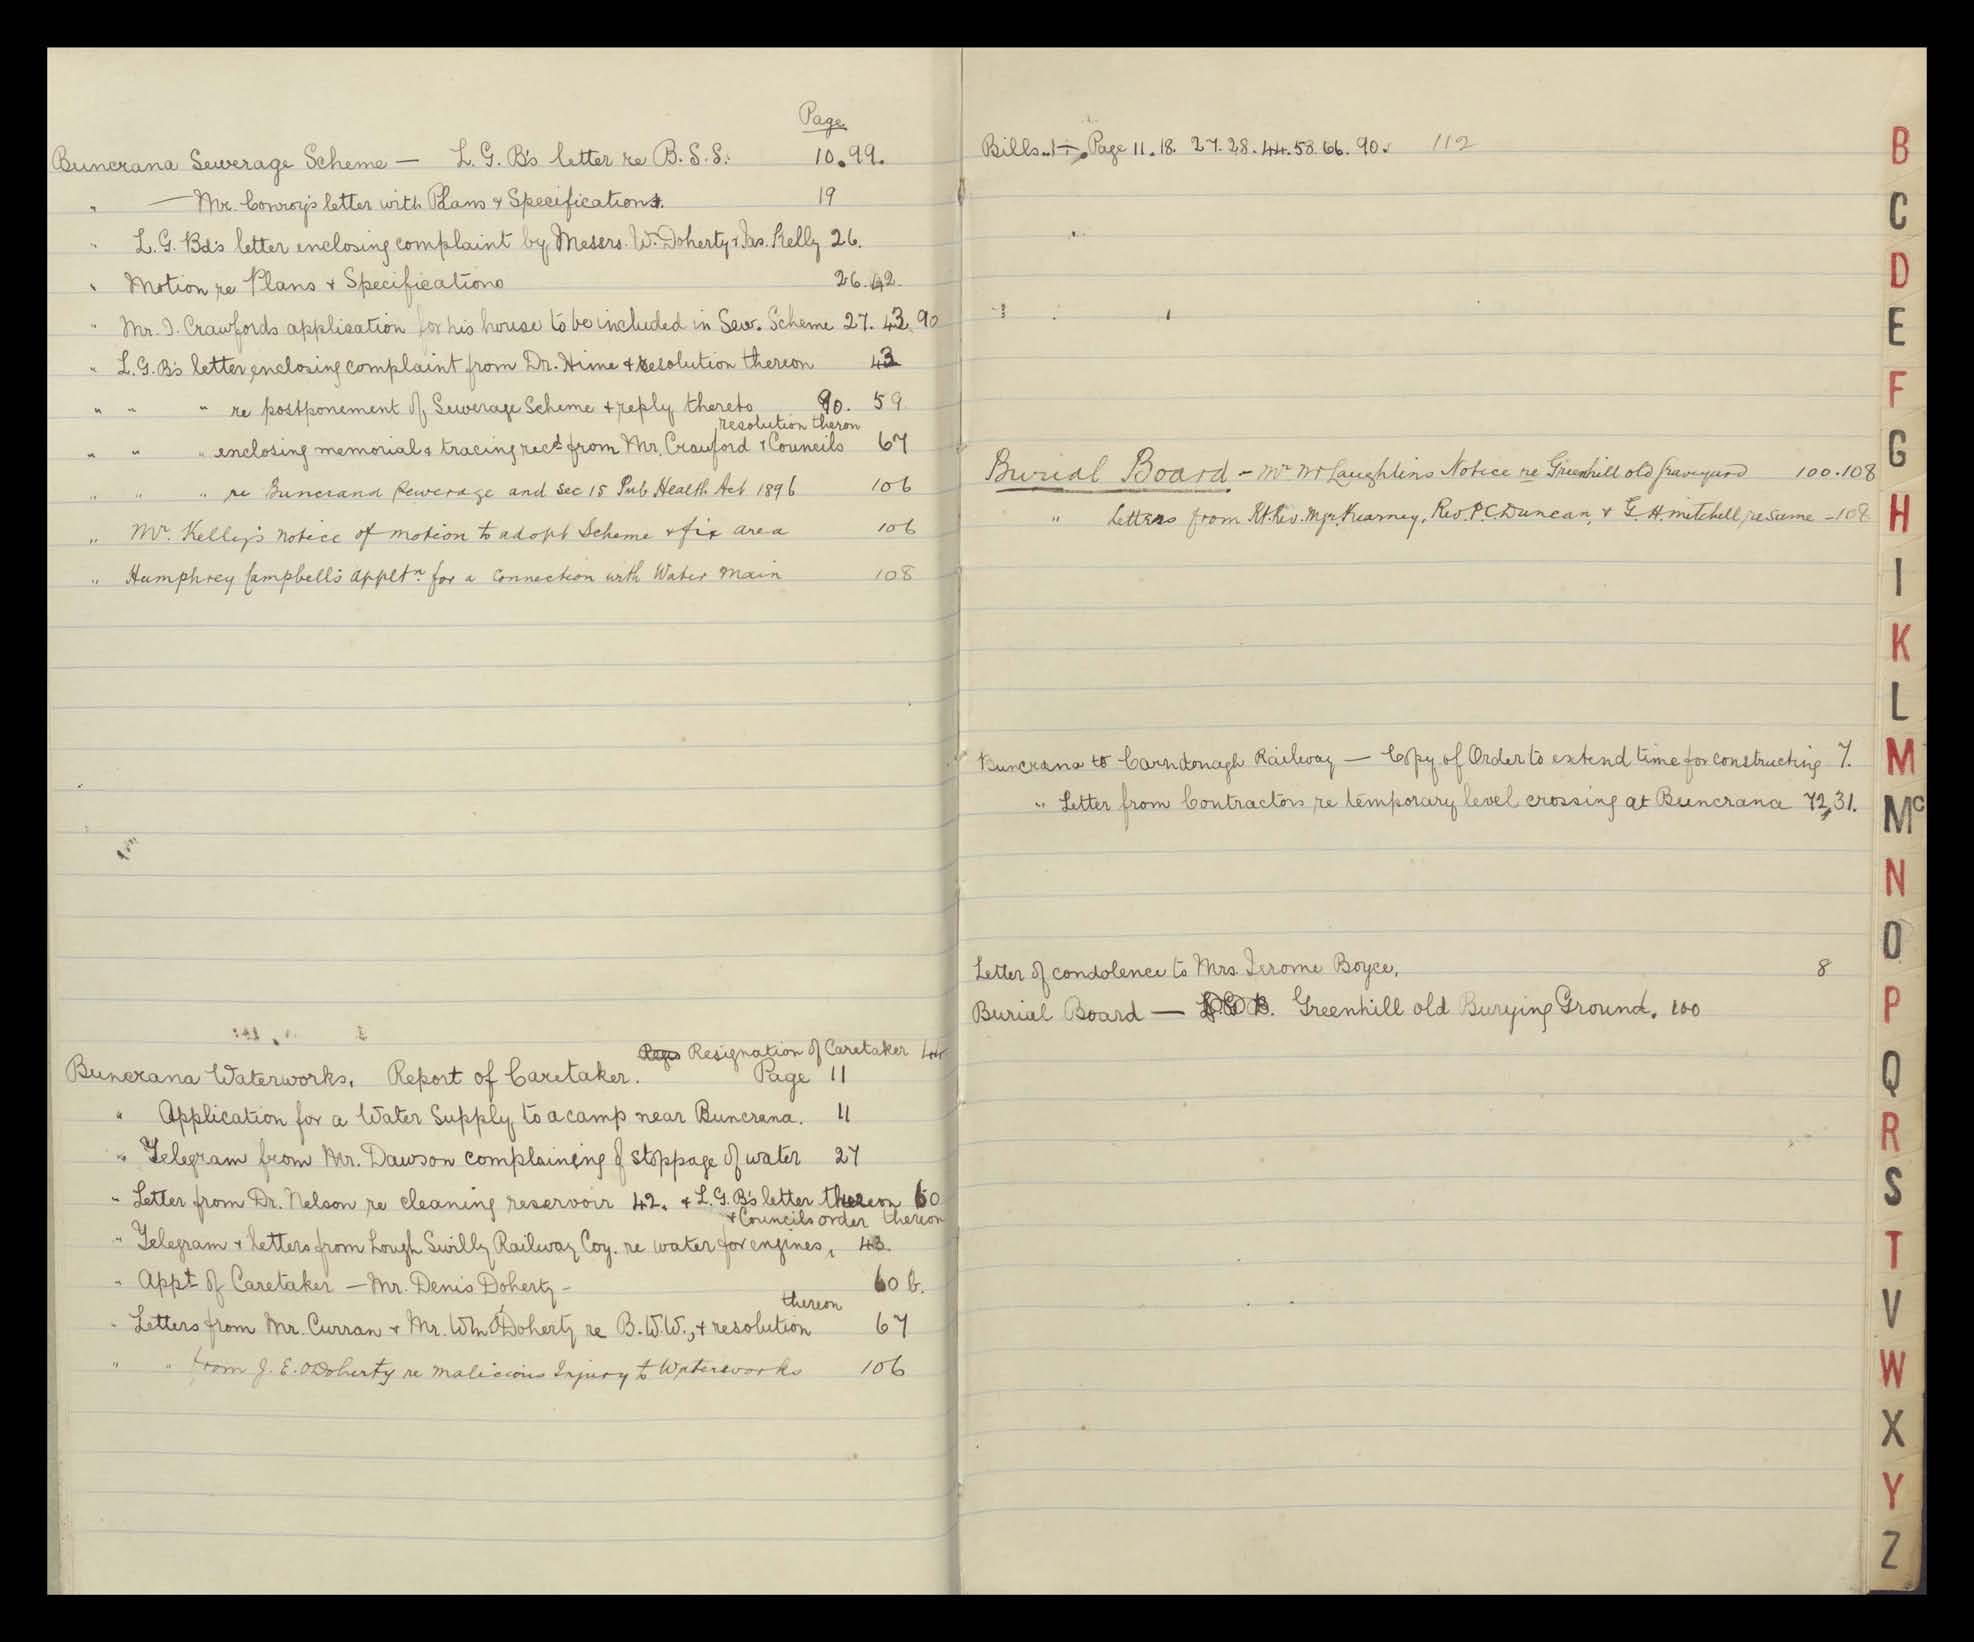 Page
Buncrana Sewerage Scheme — L. G. B's letter re B. S. S. 10. 99.
" — Mr. Conroy's letter with Plans & Specifications. 19
" L. G. Bd's letter enclosing complaint by Messrs. W. Doherty & Jas. Kelly 26.
" Motion re Plans & Specifications 26. 42.
" Mr. J. Crawfords application for his house to be included in Sew. Scheme 27. 43. 90
" L. G. B's letter enclosing complaint from Dr. Hime & resolution thereon 43
" " " re postponement of Sewerage Scheme & reply thereto 90. 59
resolution theron
" " " enclosing memorial & tracing recd from Mr. Crawford & Councils 67
" " " re Buncrana Sewerage and Sec 15 Pub Health Act 1896 106
" Mr. Kelly's notice of motion to adopt Scheme & fix area 106
" Humphrey Campbell's appltn for a connection with Water Main 108
Resignation of Caretaker 44
Buncrana Waterworks. Report of Caretaker. Page 11
" Application for a Water Supply to a camp near Buncrana. 11
" Telegram from Mr. Dawson complaining of stoppage of water 27
" Letter from Dr. Nelson re cleaning reservoir 42. & L. G. B's letter thereon 60
& Councils order thereon
" Telegram & letters from Lough Swilly Railway Coy. re water for engines, 43.
" Appt of Caretaker — Mr. Denis Doherty — 60 b.
thereon
" Letters from Mr. Curran & Mr. Wm O'Doherty re B. W. W., & resolution 67
" " from J. E. O'Doherty re Malicious Injury to Waterworks 106
Bills. Page 11. 18. 27. 28. 44. 53. 66. 90. 112
Burial Board — Mr McLaughlins Notice re Greenhill old Graveyard 100. 108
" Letters from Rt. Rev. Mgr. Kearney, Rev. P. C. Duncan, & G. H. Mitchell, re same — 108
Buncrana to Carndonagh Railway — Copy of Order to extend time for constructing 7.
" Letter from Contractors re temporary level crossing at Buncrana 72, 31.
Letter of condolence to Mrs. Jerome Boyce. 8
Burial Board — Greenhill old Burying Ground. 100
B
C
D
E
F
G
H
I
K
L
M
Mc
N
O
P
Q
R
S
T
V
W
X
Y
Z